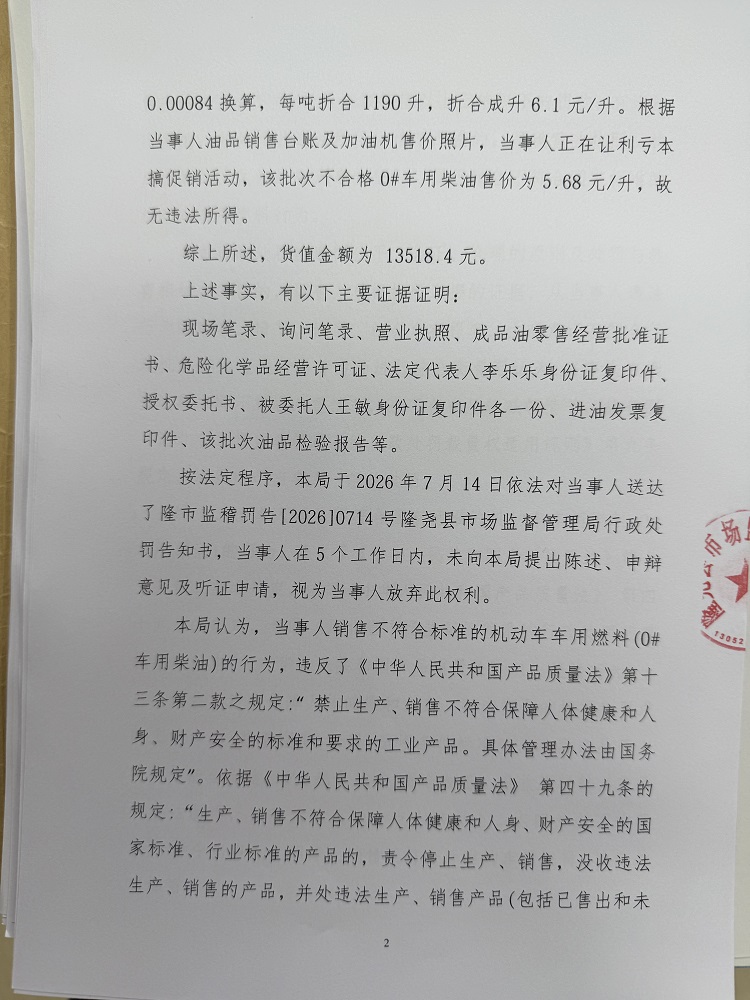 0.00084 换算，每吨折合 1190 升，折合成升 6.1 元/升。根据
当事人油品销售台账及加油机售价照片，当事人正在让利亏本
搞促销活动，该批次不合格 0#车用柴油售价为 5.68 元/升，故
无违法所得。
综上所述，货值金额为 13518.4 元。
上述事实，有以下主要证据证明：
现场笔录、询问笔录、营业执照、成品油零售经营批准证
书、危险化学品经营许可证、法定代表人李乐乐身份证复印件、
授权委托书、被委托人王敏身份证复印件各一份、进油发票复
印件、该批次油品检验报告等。
按法定程序，本局于 2026 年 7 月 14 日依法对当事人送达
了隆市监稽罚告[2026]0714 号隆尧县市场监督管理局行政处
罚告知书，当事人在 5 个工作日内，未向本局提出陈述、申辩
意见及听证申请，视为当事人放弃此权利。
本局认为，当事人销售不符合标准的机动车车用燃料(0#
车用柴油)的行为，违反了《中华人民共和国产品质量法》第十
三条第二款之规定:“ 禁止生产、销售不符合保障人体健康和人
身、财产安全的标准和要求的工业产品。具体管理办法由国务
院规定”。依据《中华人民共和国产品质量法》 第四十九条的
规定:“生产、销售不符合保障人体健康和人身、财产安全的国
家标准、行业标准的产品的，责令停止生产、销售，没收违法
生产、销售的产品，并处违法生产、销售产品(包括已售出和未
2
市场
13052